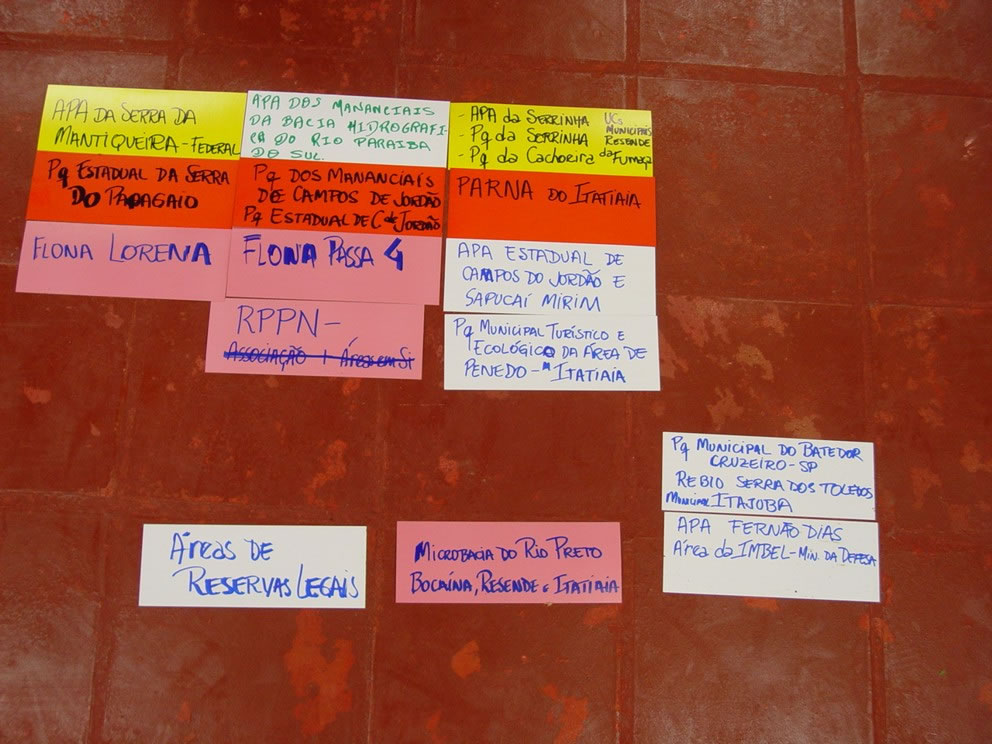 APA DA SERRA DA
MANTIQUEIRA - FEDERAL
Pq ESTADUAL DA SERRA
DO PAPAGAIO
FLONA LORENA
APA DOS MANANCIAIS
DA BACIA HIDROGRAFI-
CA DO RIO PARAIBA
DO SUL.
Pq DOS MANANCIAIS
DE CAMPOS DE JORDÃO
Pq ESTADUAL DE C. de JORDÃO
FLONA PASSA 4
RPPN -
ASSOCIAÇÃO + ÁREAS em Si
- APA da SERRINHA
- Pq da SERRINHA
- Pq da Cachoeira da Fumaça
UCs
MUNICIPAIS
RESENDE
PARNA DO ITATIAIA
APA ESTADUAL DE
CAMPOS DO JORDÃO E
SAPUCAÍ MIRIM
Pq MUNICIPAL TURÍSTICO E
ECOLÓGICO DA ÁREA DE
PENEDO - ITATIAIA
Pq MUNICIPAL DO BATEDOR
CRUZEIRO - SP
REBIO SERRA DOS TOLEDOS
MUNICIPAL ITAJUBA
APA FERNÃO DIAS
Área da IMBEL - MIN. DA DEFESA
ÁREAS DE
RESERVAS LEGAIS
MICROBACIA DO RIO PRETO
BOCAÍNA, RESENDE e ITATIAIA